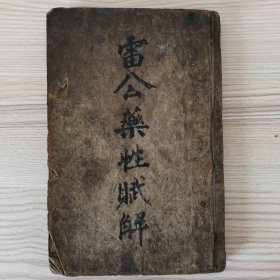 雷公藥性賦解